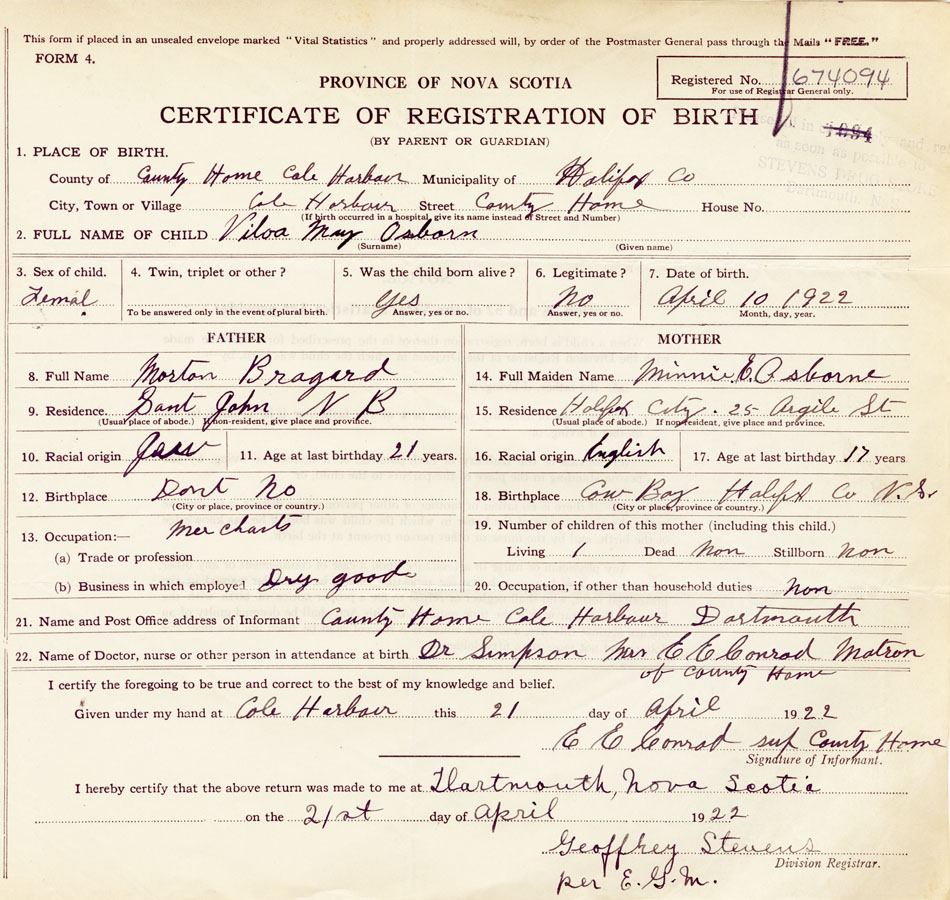 This form if placed in an unsealed envelope marked "Vital Statistics" and properly addressed will, by order of the Postmaster General pass through the Mails "FREE."
FORM 4.
PROVINCE OF NOVA SCOTIA
Registered No. 674094
For use of Registrar General only.
CERTIFICATE OF REGISTRATION OF BIRTH
4094
(BY PARENT OR GUARDIAN)
as soon as possible to
STEVENS
Dartmouth, N.S.
1. PLACE OF BIRTH.
County of County Home Cole Harbour Municipality of Halifax Co
City, Town or Village Cole Harbour Street County Home House No.
(If birth occurred in a hospital, give its name instead of Street and Number)
2. FULL NAME OF CHILD Viloa May Osborn
(Surname) (Given name)
3. Sex of child. 4. Twin, triplet or other? 5. Was the child born alive? 6. Legitimate? 7. Date of birth.
Femal Yes No April 10 1922
To be answered only in the event of plural birth. Answer, yes or no. Answer, yes or no. Month, day, year.
FATHER MOTHER
8. Full Name Morton Bragard 14. Full Maiden Name Minnie E. Osborne
9. Residence. Sant John N B 15. Residence Halifax City. 25 Argile St
(Usual place of abode.) If non-resident, give place and province. (Usual place of abode.) If non-resident, give place and province.
10. Racial origin 11. Age at last birthday 21 years. 16. Racial origin English 17. Age at last birthday 17 years.
12. Birthplace Dont No 18. Birthplace Cow Bay Halifax Co N.S.
(City or place, province or country.) (City or place, province or country.)
13. Occupation:— Merchants 19. Number of children of this mother (including this child.)
(a) Trade or profession Living 1 Dead Non Stillborn Non
(b) Business in which employed Dry goods 20. Occupation, if other than household duties Non
21. Name and Post Office address of Informant County Home Cole Harbour Dartmouth
22. Name of Doctor, nurse or other person in attendance at birth Dr Simpson Mrs E E Conrad Matron
of County Home
I certify the foregoing to be true and correct to the best of my knowledge and belief.
Given under my hand at Cole Harbour this 21 day of April 1922
E E Conrad sup County Home
Signature of Informant.
I hereby certify that the above return was made to me at Dartmouth, Nova Scotia
on the 21st day of April 1922
Geoffrey Stevens
Division Registrar.
per E.G.M.